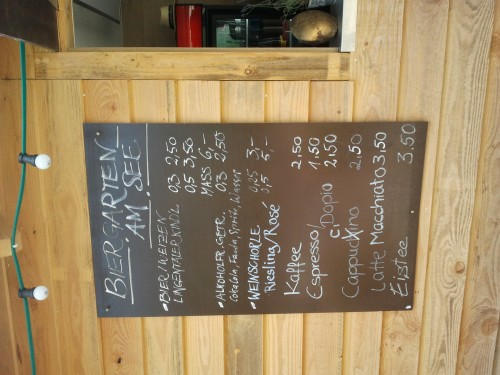 BIERGARTEN
AM SEE
- BIER/WEIZEN 0,3 2,50
0,5 3,50
MASS 6,-
- ALKOHOLFR. GETR. 0,3 2,50
Cola, Fanta, Sprite, Wasser
- WEINSCHORLE 0,25 3,-
Riesling/Rosé 0,5 5,-
Kaffee 2,50
Espresso/ 1,50
Dopio 2,50
Cappuccino 2,50
Latte Macchiato 3,50
Eistee 3,50